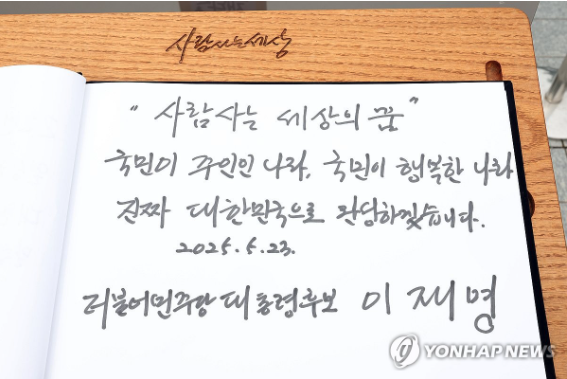 사람사는세상
"사람사는 세상의 꿈"
국민이 주인인 나라, 국민이 행복한 나라
진짜 대한민국으로 완성하겠습니다.
2025.5.23.
더불어민주당 대통령후보 이재명
YONHAP NEWS